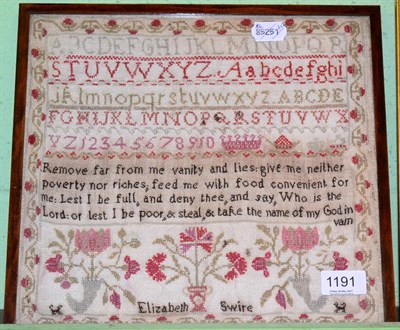 85251
ABCDEFGHIJKLMNOPQR
STUVWXYZ. Aabcdefghi
jklmnopqrstuvwxyz ABCDE
FGHIJKLMNOPQRSTUVWX
YZ12345678910
Remove far from me vanity and lies: give me neither
poverty nor riches; feed me with food convenient for
me: Lest I be full, and deny thee, and say, Who is the
Lord: or lest I be poor, & steal, & take the name of my God in
vain
1191
Elizabeth Swire